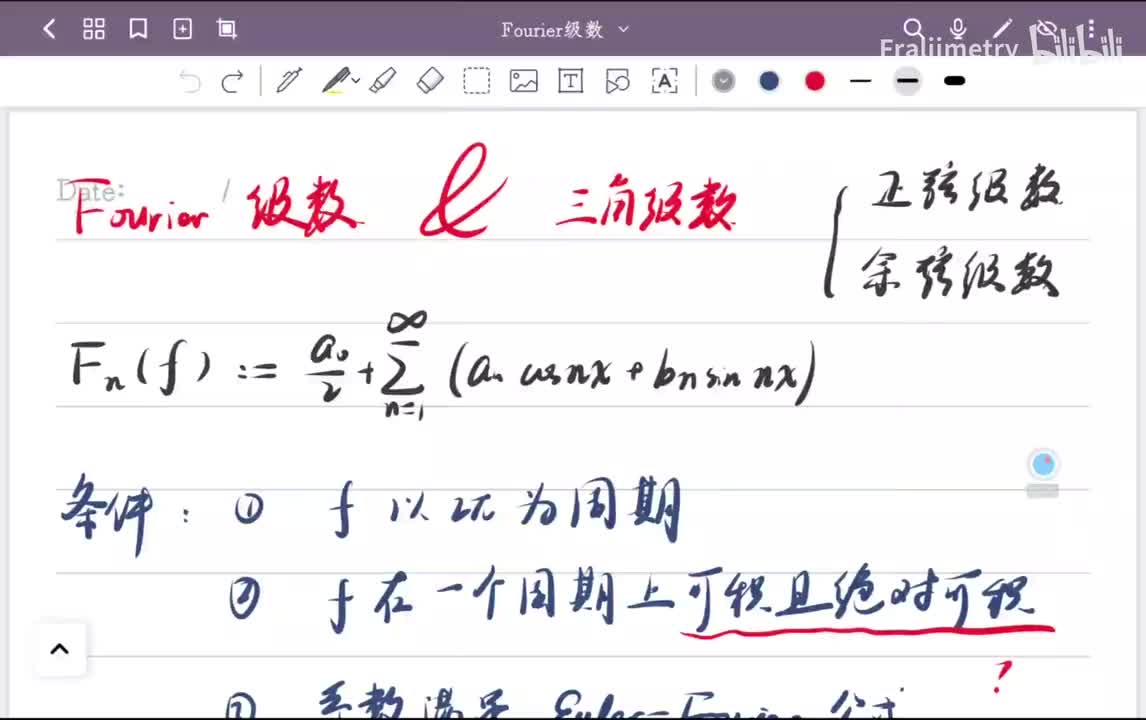 Fourier级数
Fraliimetry bilibili
Date: /
Fourier 级数 & 三角级数
正弦级数
余弦级数
Fn(f) := a₀/2 + ∑_{n=1}^{∞} (an cos nx + bn sin nx)
条件: ① f 以 2π 为周期
② f 在一个周期上可积且绝对可积
?
系数满足 Euler-Fourier 公式